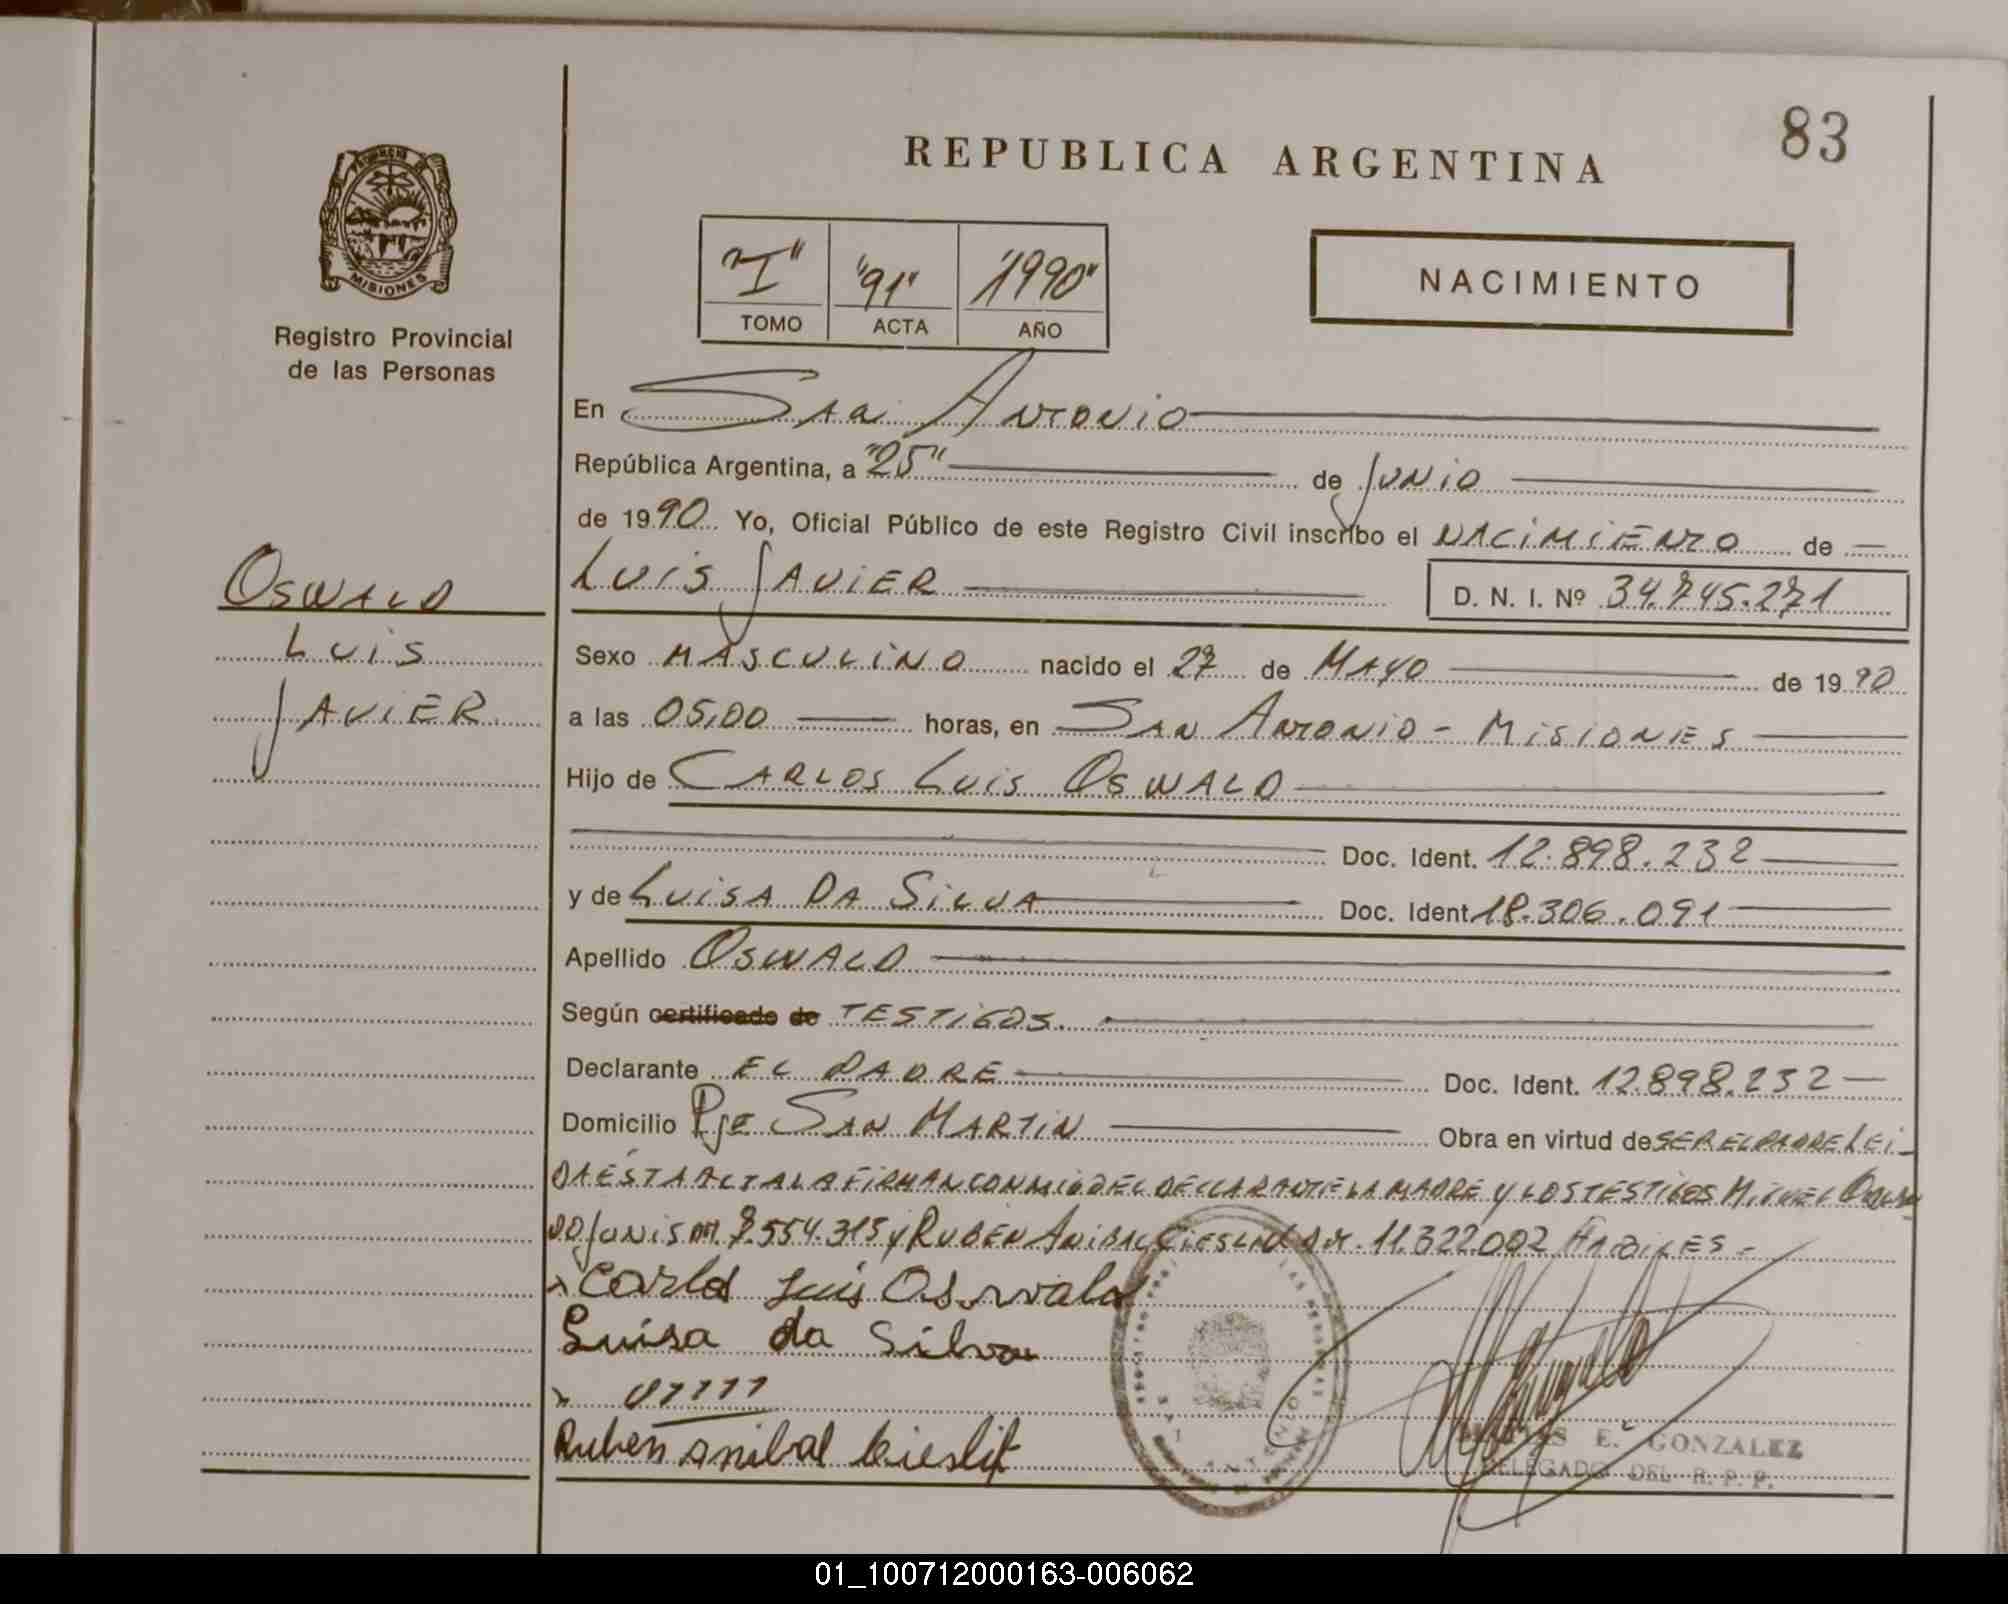 83
REPUBLICA ARGENTINA
PROVINCIA DE
MISIONES
Registro Provincial
de las Personas
"I" "91" "1990"
TOMO ACTA AÑO
NACIMIENTO
En San Antonio
República Argentina, a "25" de Junio
de 1990 Yo, Oficial Público de este Registro Civil inscribo el NACIMIENTO de
LUIS JAVIER D. N. I. Nº 34.745.271
OSWALD
LUIS
JAVIER
Sexo MASCULINO nacido el 27 de MAYO de 1990
a las 05,00 horas, en SAN ANTONIO - MISIONES
Hijo de CARLOS LUIS OSWALD
Doc. Ident. 12.898.232
y de LUISA DA SILVA Doc. Ident. 18.306.091
Apellido OSWALD
Según certificado de TESTIGOS.
Declarante EL PADRE Doc. Ident. 12.898.232
Domicilio Pje SAN MARTIN Obra en virtud de SER EL PADRE LEI-
DA ESTA ACTA LA FIRMAN CONMIGO EL DECLARANTE LA MADRE Y LOS TESTIGOS MIGUEL
7.554.315 y RUBEN ANIBAL CIESLIK 11.322.002 HABILES-
Carlos Luis Oswald
Luisa da Silva
Ruben anibal Cieslik
E. GONZALEZ
DELEGADO DEL R. P. P.
01_100712000163-006062